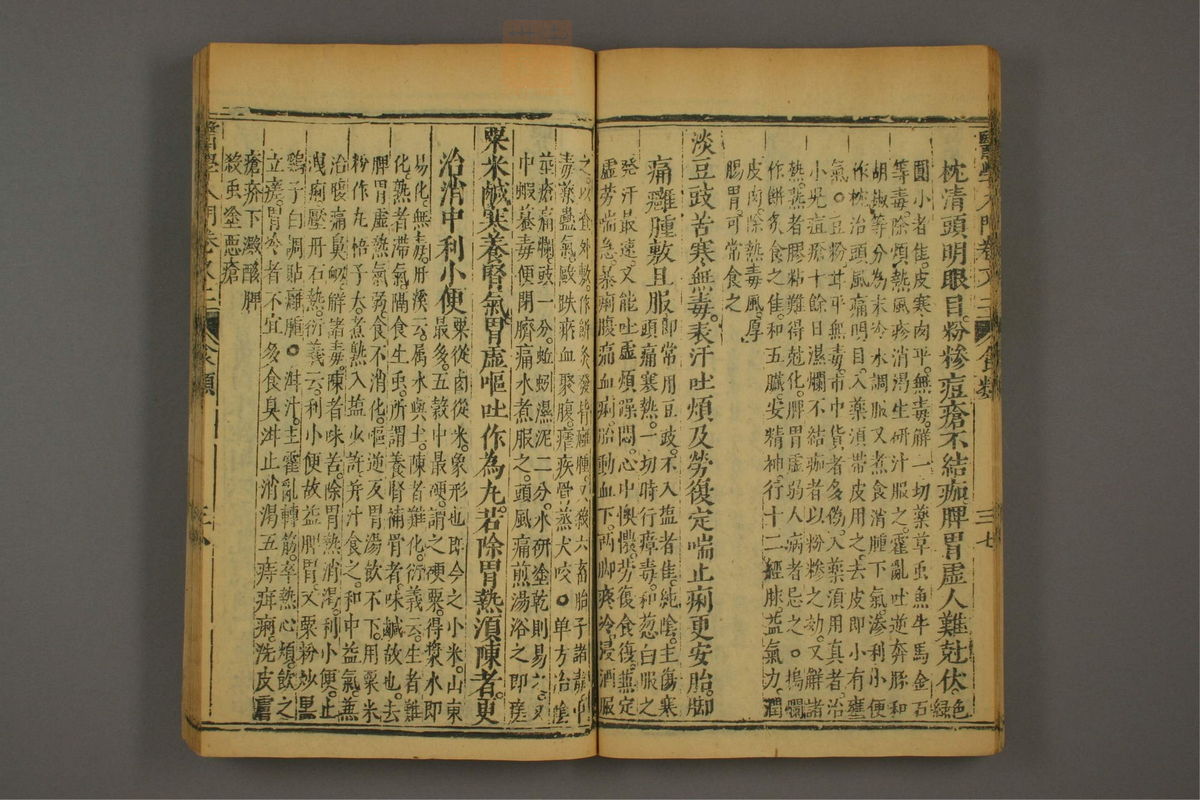 醫學入門卷之二 食類 三七
枕清頭明眼目粉糝痘瘡不結痂脾胃虛人難尅伏色綠
圓小者佳皮寒肉平無毒解一切藥草虫魚牛馬金石
等毒除煩熱風疹消渴生研汁服之霍亂吐逆奔豚和
胡椒等分為末冷水調服又煮食消腫下氣滲利小便
作枕治頭風痛明目入藥須帶皮用之去皮即小有壅
氣豆粉甘平無毒市中貨者多偽入藥須用真者治
小兒痘瘡十餘日濕爛不結痂者以粉糝之効又解諸
熱熱者膠粘難得尅化脾胃虛弱人病者忌之搗爛
作餅炙食之佳和五臟安精神行十二經脉益氣力潤
皮肉除熱毒風厚
腸胃可常食之
淡豆豉苦寒無毒表汗吐煩及勞復定喘止痢更安胎脚
痛癰腫敷且服即常用豆豉不入塩者佳純陰主傷寒
頭痛寒熱一切時行瘴毒和葱白服之
發汗最速又能吐虛煩躁悶心中懊憹勞復食復兼定
虛勞喘急暴痢腹痛血痢胎動血下兩脚疼冷浸酒服
之以查外敷作餅灸發背癰腫又殺六畜胎子諸毒中
毒藥蠱氣 血聚腹瘧疾骨蒸犬咬單方治陰
莖瘡痛爛豉一分蚯蚓濕泥二分水研塗乾則易之又
中蝦蟇毒便閉臍痛水煮服之頭風痛煎湯浴之即瘥
粟米鹹寒養腎氣胃虛嘔吐作為丸若除胃熱須陳者更
治消中利小便粟從卤從米象形也即今之小米山東
最多五穀中最硬謂之硬粟得漿水即
易化無毒 云属水與土陳者難化衍義云生者難
化熟者滯氣隔食生虫所謂養腎補骨者味鹹故也去
脾胃虛熱氣弱食不消化嘔逆反胃湯飲不下用粟米
粉作丸梧子大煮熟入塩少許并汁食之和中益氣兼
治腹痛鼻衂解諸毒陳者味苦除胃熱消渴利小便止
洩痢壓丹石熱衍義云利小便故益脾胃又粟粉炒黑
鷄子白調貼癰腫泔汁主霍亂轉筋卒熱心煩飲之
立瘥胃冷者不宜多食臭泔止消渴五痔疳痢洗皮膚
瘡疥下澱酸脾
殺虫塗惡瘡
醫學入門卷之二 食類 三八